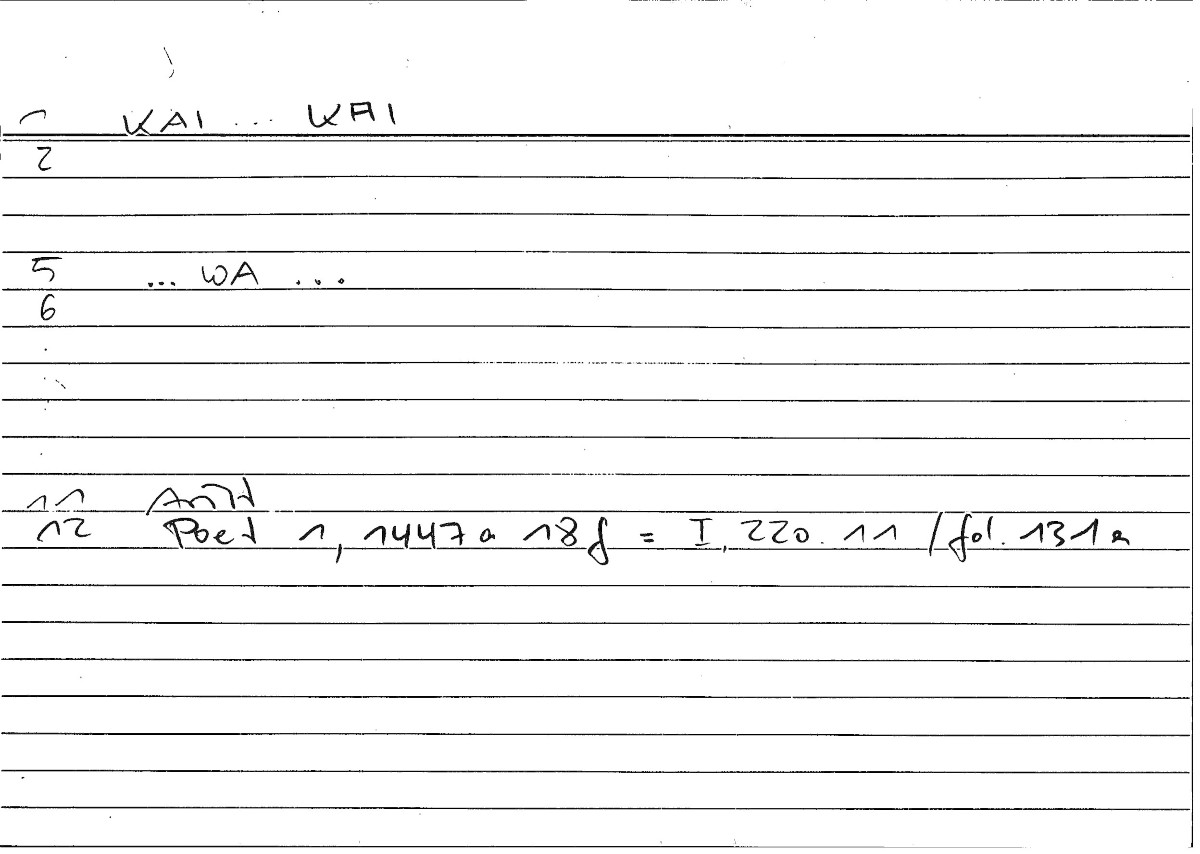 1 KAI ... KAI
2
5 ... WA ...
6
11
12 Poet 1, 1447a 18f = I, 220.11 / fol. 131a